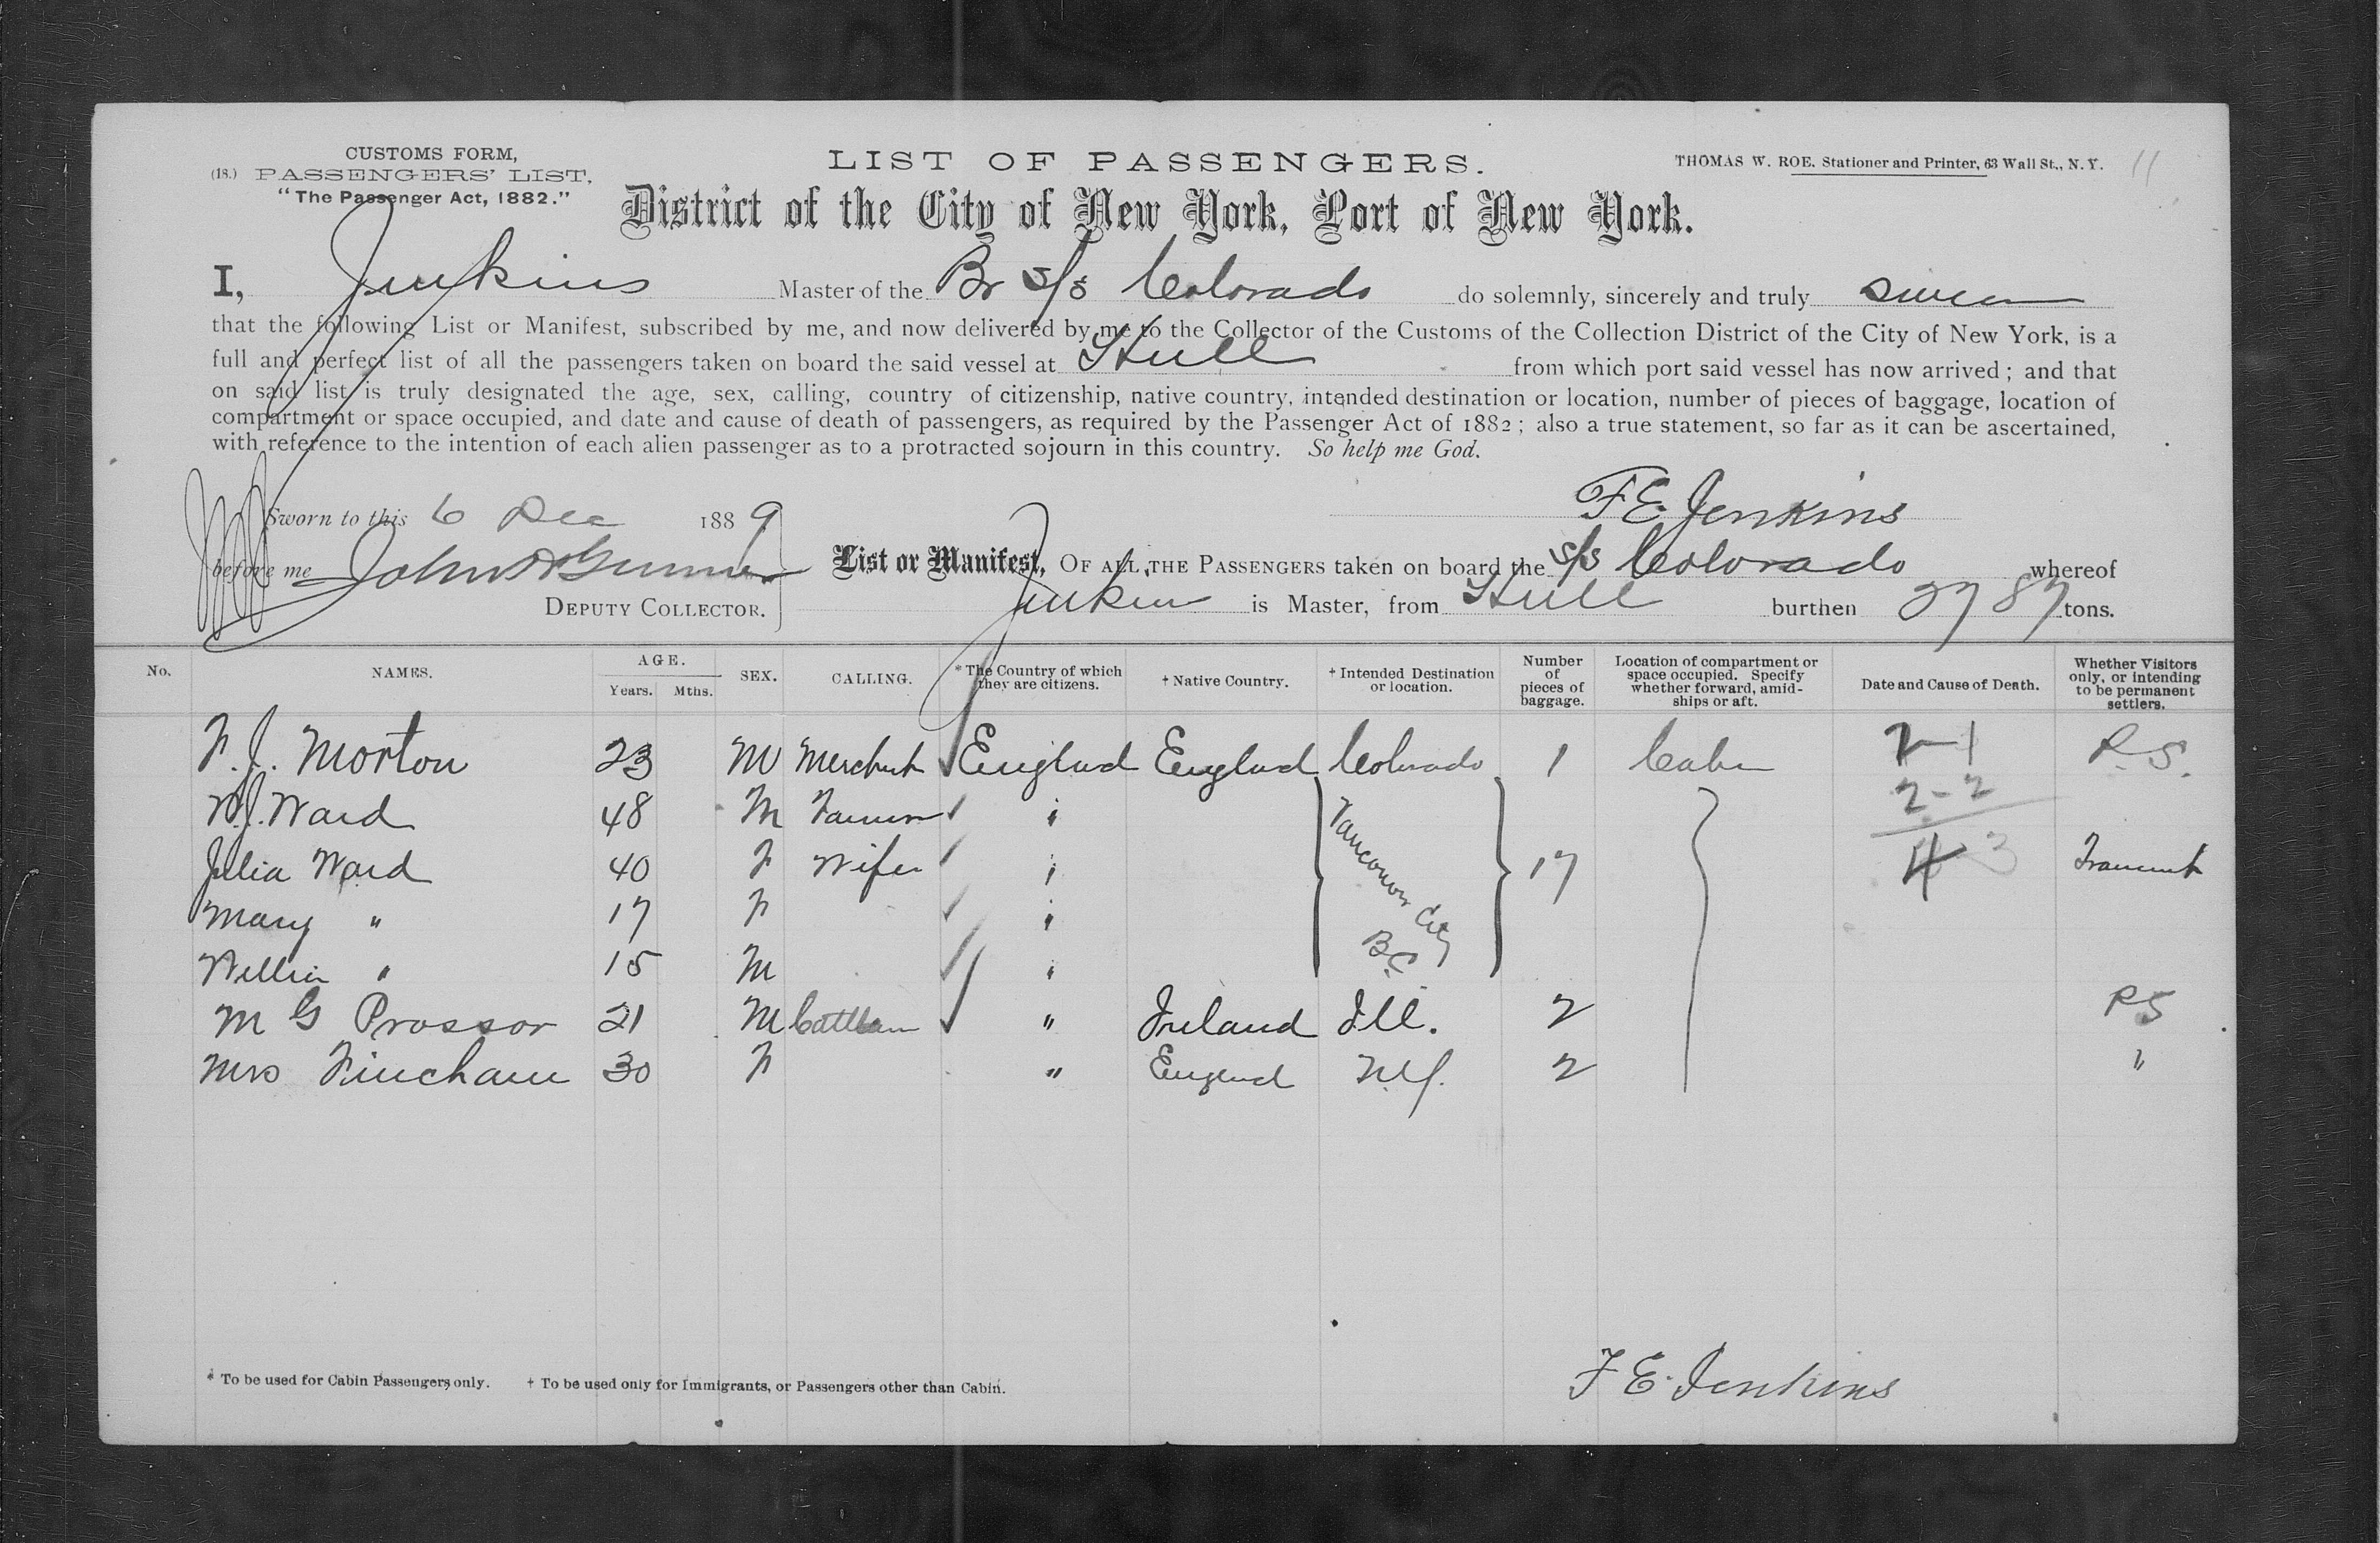 CUSTOMS FORM,
(18.) PASSENGERS' LIST,
"The Passenger Act, 1882."
LIST OF PASSENGERS.
THOMAS W. ROE, Stationer and Printer, 63 Wall St., N.Y. 11
District of the City of New York, Port of New York.
I, Jenkins Master of the Br S/S Colorado do solemnly, sincerely and truly swear
that the following List or Manifest, subscribed by me, and now delivered by me to the Collector of the Customs of the Collection District of the City of New York, is a
full and perfect list of all the passengers taken on board the said vessel at Hull from which port said vessel has now arrived; and that
on said list is truly designated the age, sex, calling, country of citizenship, native country, intended destination or location, number of pieces of baggage, location of
compartment or space occupied, and date and cause of death of passengers, as required by the Passenger Act of 1882; also a true statement, so far as it can be ascertained,
with reference to the intention of each alien passenger as to a protracted sojourn in this country. So help me God.
F E Jenkins
Sworn to this 6 Dec 1889
before me John
DEPUTY COLLECTOR.
List or Manifest, OF ALL THE PASSENGERS taken on board the S/S Colorado whereof
Jenkins is Master, from Hull burthen 2787 tons.
No. NAMES. AGE. Years. Mths. SEX. CALLING. * The Country of which they are citizens. † Native Country. † Intended Destination or location. Number of pieces of baggage. Location of compartment or space occupied. Specify whether forward, amidships or aft. Date and Cause of Death. Whether Visitors only, or intending to be permanent settlers.
F.J. Morton 23 M Merchant England England Colorado 1 Cabin 2-1 P.S.
W.J. Ward 48 M Farmer " 2-2
Julia Ward 40 F Wife " Vancouver City B.C. 17 4 3 Transient
Mary " 17 F "
Willie " 15 M "
M G Prossor 21 M Cattleman " Ireland Ill. 2 P S
Mrs Fincham 30 F " England N.Y. 2 "
* To be used for Cabin Passengers only. † To be used only for Immigrants, or Passengers other than Cabin.
F E Jenkins